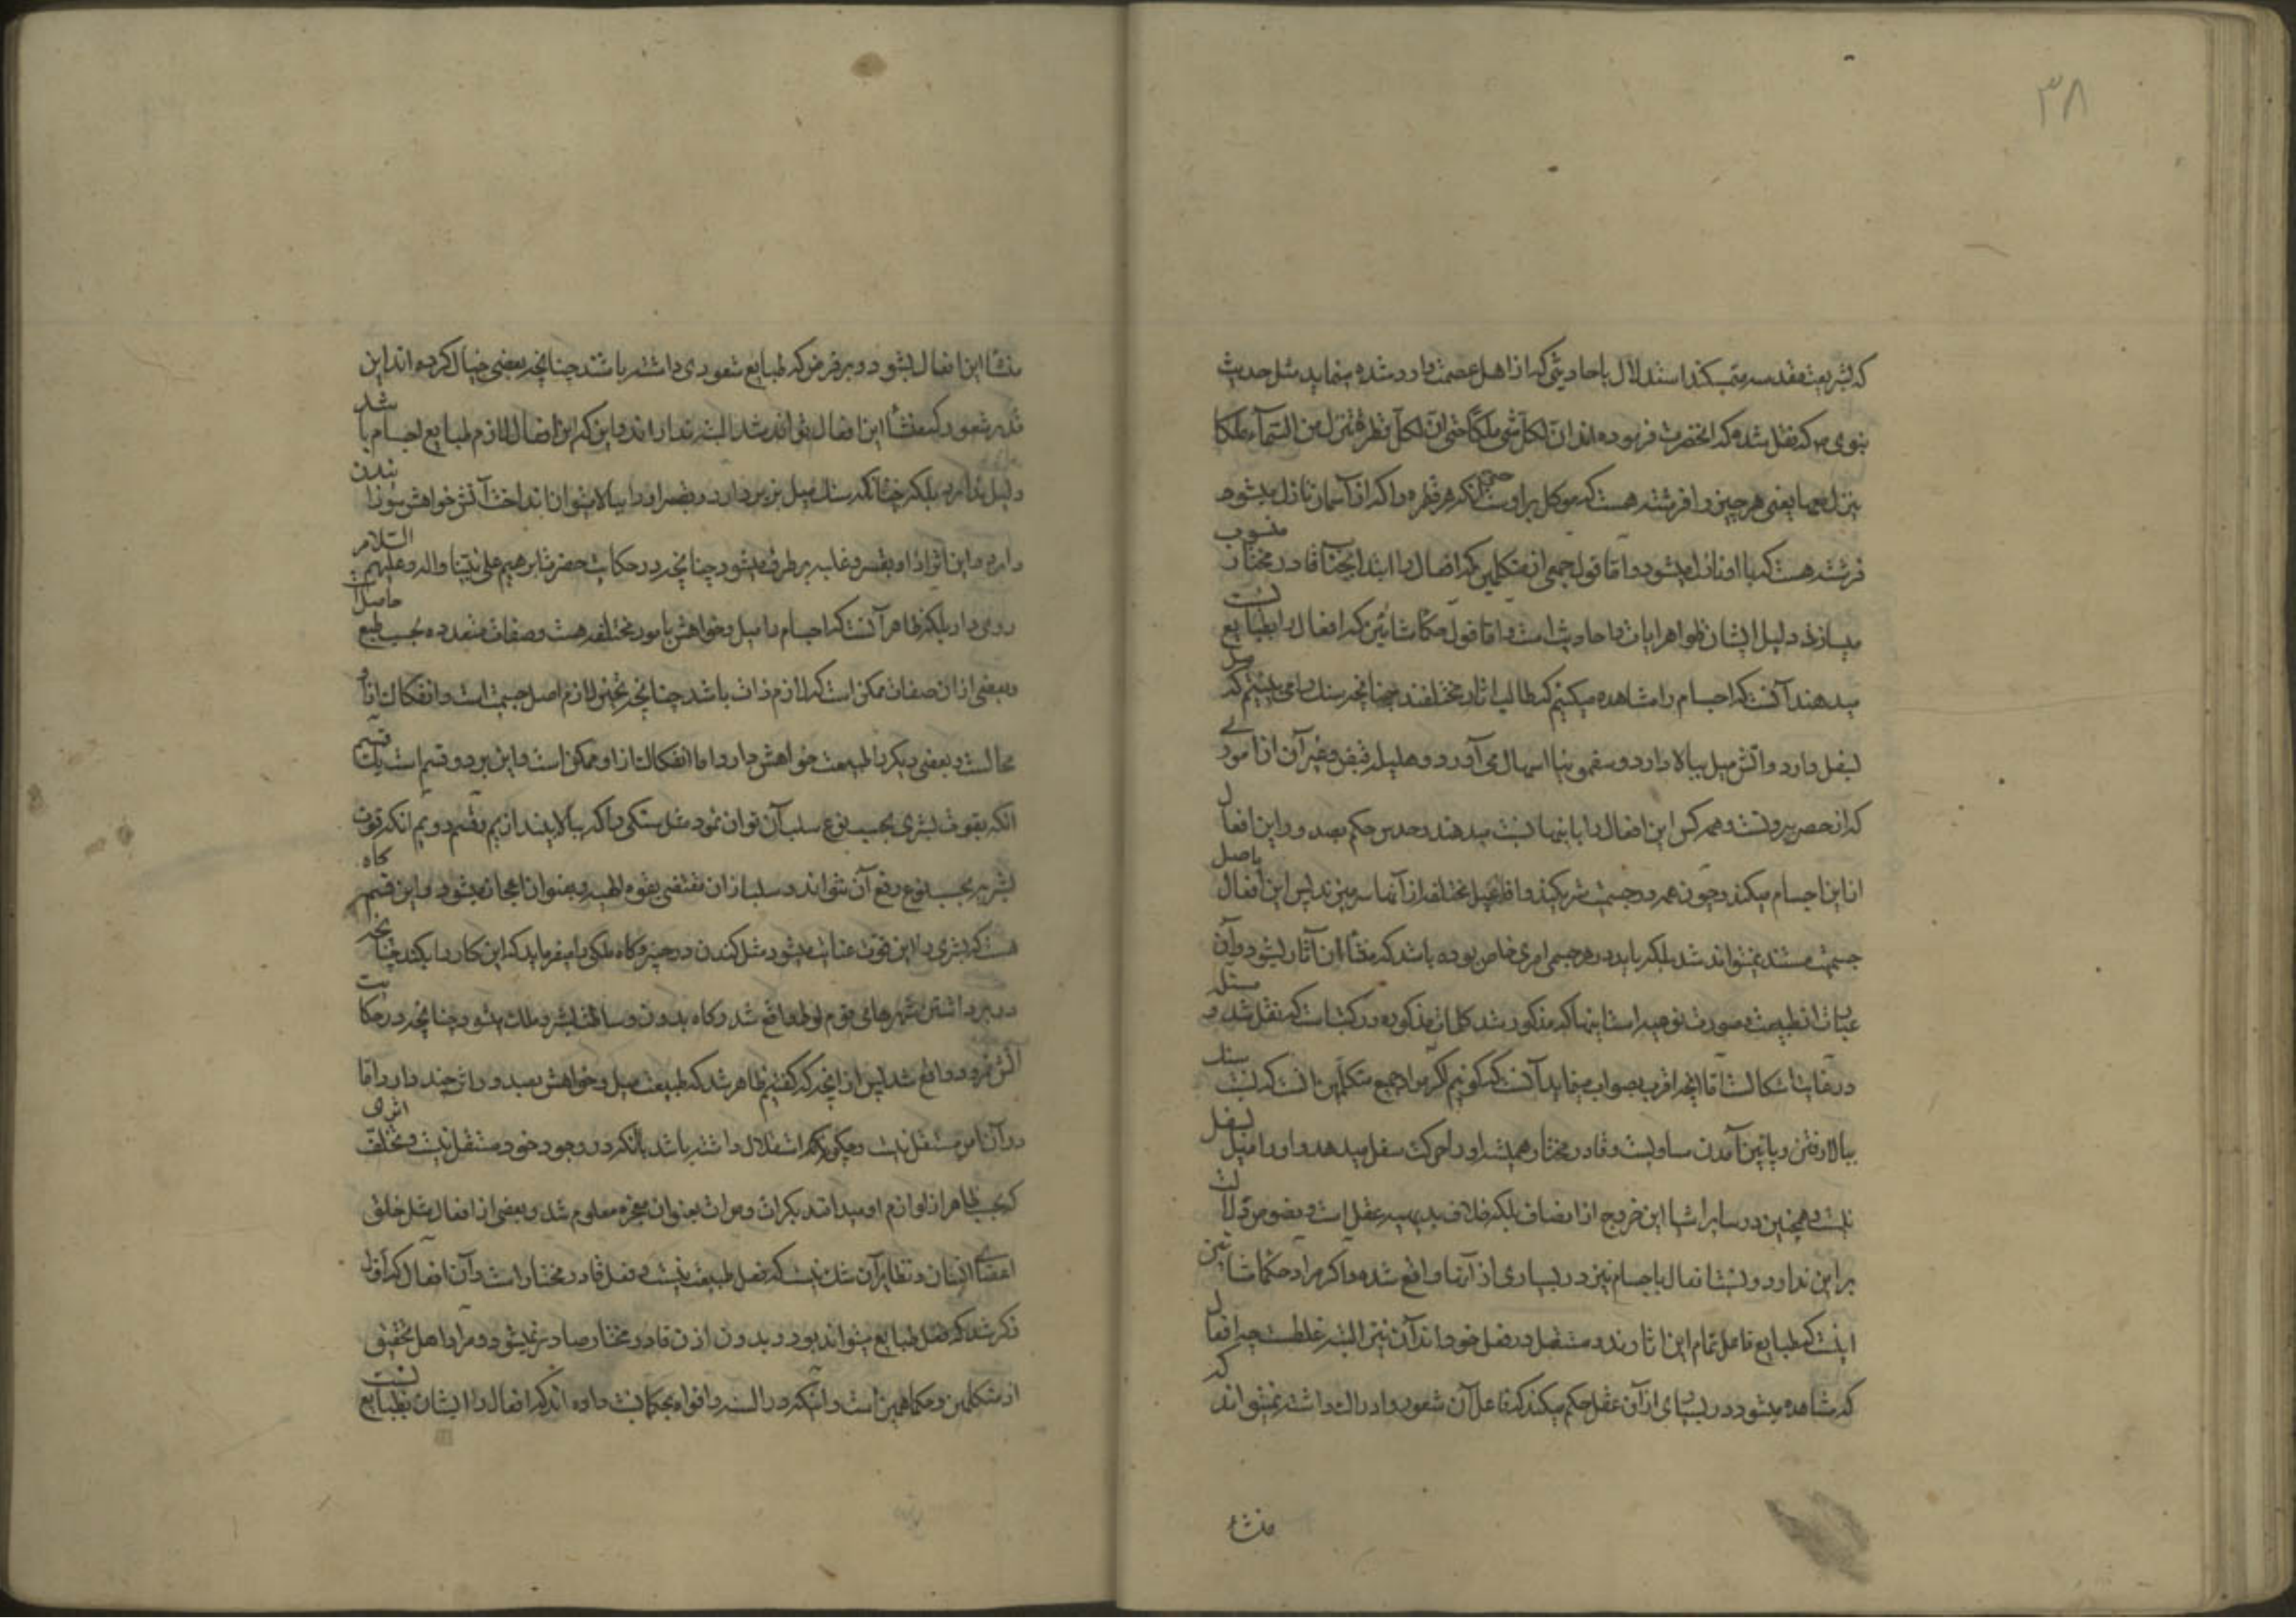 ۳۸
که بشریعت مقدسه متمسکند استدلال باحادیثی که از اهل عصمت وارد شده مینماید مثل حدیث
نبوی ص که نقل شده که انحضرت فرموده اند ان لکل شی ملکا حتی ان لکل قطرة تنزل من السماء ملکا
ینزل معها یعنی هر چیز را فرشته هست که موکل بر اوست حتی انکه هر قطره را که از آسمان نازل میشود
فرشته هست که با او نازل میشود و اما قول جمعی از متکلمین که افعال را ابتدا بجناب قادر مختار منسوب
میسازند دلیل ایشان ظواهر ایات و احادیث است و اما قول حکما مشائین که افعال را بطبایع نسبت
میدهند آنست که اجسام را مشاهده میکنیم که طالب اثار مختلفند چنانچه سنک را می بینیم که میل
بسفل دارد و آتش میل ببالا دارد و سقمونیا اسهال می آورد و هلیله قبض و غیر آن از امور
که از حصر بیرونست و همه کس این افعال را باینها نسبت میدهند و حدس حکم بصدور این افعال
از این اجسام میکند و چون همه در جسمیت شریکند و افاعیل مختلفه از آنها سر میزند پس این افعال باصل
جسمیت مستند نمیتواند شد بلکه باید در هر جسمی امری خاص بوده باشد که منشأ ان آثار بشود و آن
عبارت از طبیعت و صورت نوعیه است اینها که مذکور شد کلمات مذکوره در کتبست که نقل شد و مسئله
در غایت اشکالست اما انچه اقرب بصواب مینماید آنست که کوئیم اکر مراد جمیع متکلمین انست که نسبت سنک
ببالا رفتن و پائین آمدن مساویست و قادر مختار همیشه او را حرکت سفل میدهد و او را میل بسفل
نیست و همچنین در سایر اشیا این خروج از انصاف بلکه خلاف بدیهیه عقل است و نصوص دلالت
بر این ندارد و نسبت افعال باجسام نیز در بسیاری از آنها واقع شده و اکر مراد حکما مشائین
اینست که طبایع فاعل تمام این اثارند و مستقل در فعل خودند آن نیز البته غلطست چه افعال
که مشاهده میشود در بسیاری از آن عقل حکم میکند که فاعل آن شعور و ادراک داشته نمیتواند که
منشأ
منشأ این افعال بشود و بر فرض که طبایع شعوری داشته باشند چنانچه بعضی خیال کرده اند این
قدر شعور که منشأ این افعال تواند شد البته ندارند و این که این افعال لازم طبایع اجسام باشد
دلیل ندارد بلکه چنانکه سنک میل بزیر دارد و بقسر او را ببالا میتوان انداخت آتش خواهش سوزاندن
دارد و این اثر از او بقسر و غلبه بر طرف میشود چنانچه در حکایت حضرت ابرهیم علی نبینا واله وعلیهم السلام
روی داد بلکه ظاهر آنست که اجسام را میل و خواهش بامور مختلفه هست و صفات متعدده بحسب طبع حاصل است
و بعضی از ان صفات ممکن است که لازم ذات باشد چنانچه تحیز لازم اصل جسمیت است و انفکاک از او
محالست و بعضی دیکر را طبیعت خواهش دارد اما انفکاک از او ممکن است و این بر دو قسم است یک قسم
انکه بقوت بشری بحسب نوع سلب آن توان نمود مثل سنکی را که ببالا بیندازیم و قسم دویم انکه قوت
بشریه بحسب نوع رفع آن نتواند و سلب از ان مقتضی بقوه الهیه و بعنوان اعجاز میشود و این قسم کاه
هست که بشری را این قوت عنایت میشود مثل کندن در خیبر و کاه ملکی را میفرماید که این کار را بکند چنانچه
در برداشتن شهرهای قوم لوط واقع شد و کاه بدون وساطت بشر و ملک میشود چنانچه در حکایت
آتش نمرود واقع شد پس از انچه که کفتیم ظاهر شد که طبیعت میل و خواهش بصدور اثری چند دارد اما
در آن امر مستقل نیست و چکونه استقلال داشته باشد بانکه در وجود خود مستقل نیست و تخلف اثری
که بحسب ظاهر از لوازم او میدانند بکرات و مرات بعنوان معجزه معلوم شد و بعضی از افعال مثل خلق
اعضای انسان و نظایر آن شک نیست که فعل طبیعت نیست و فعل قادر مختار است و آن افعال که اول
ذکر شد که فعل طبایع میتواند بود و بدون اذن قادر مختار صادر نمیشود و مراد اهل تحقیق
از متکلمین و حکما همین است و آنکه در السنه و افواه بحکما نسبت داده اند که افعال را ایشان بطبایع نسبت